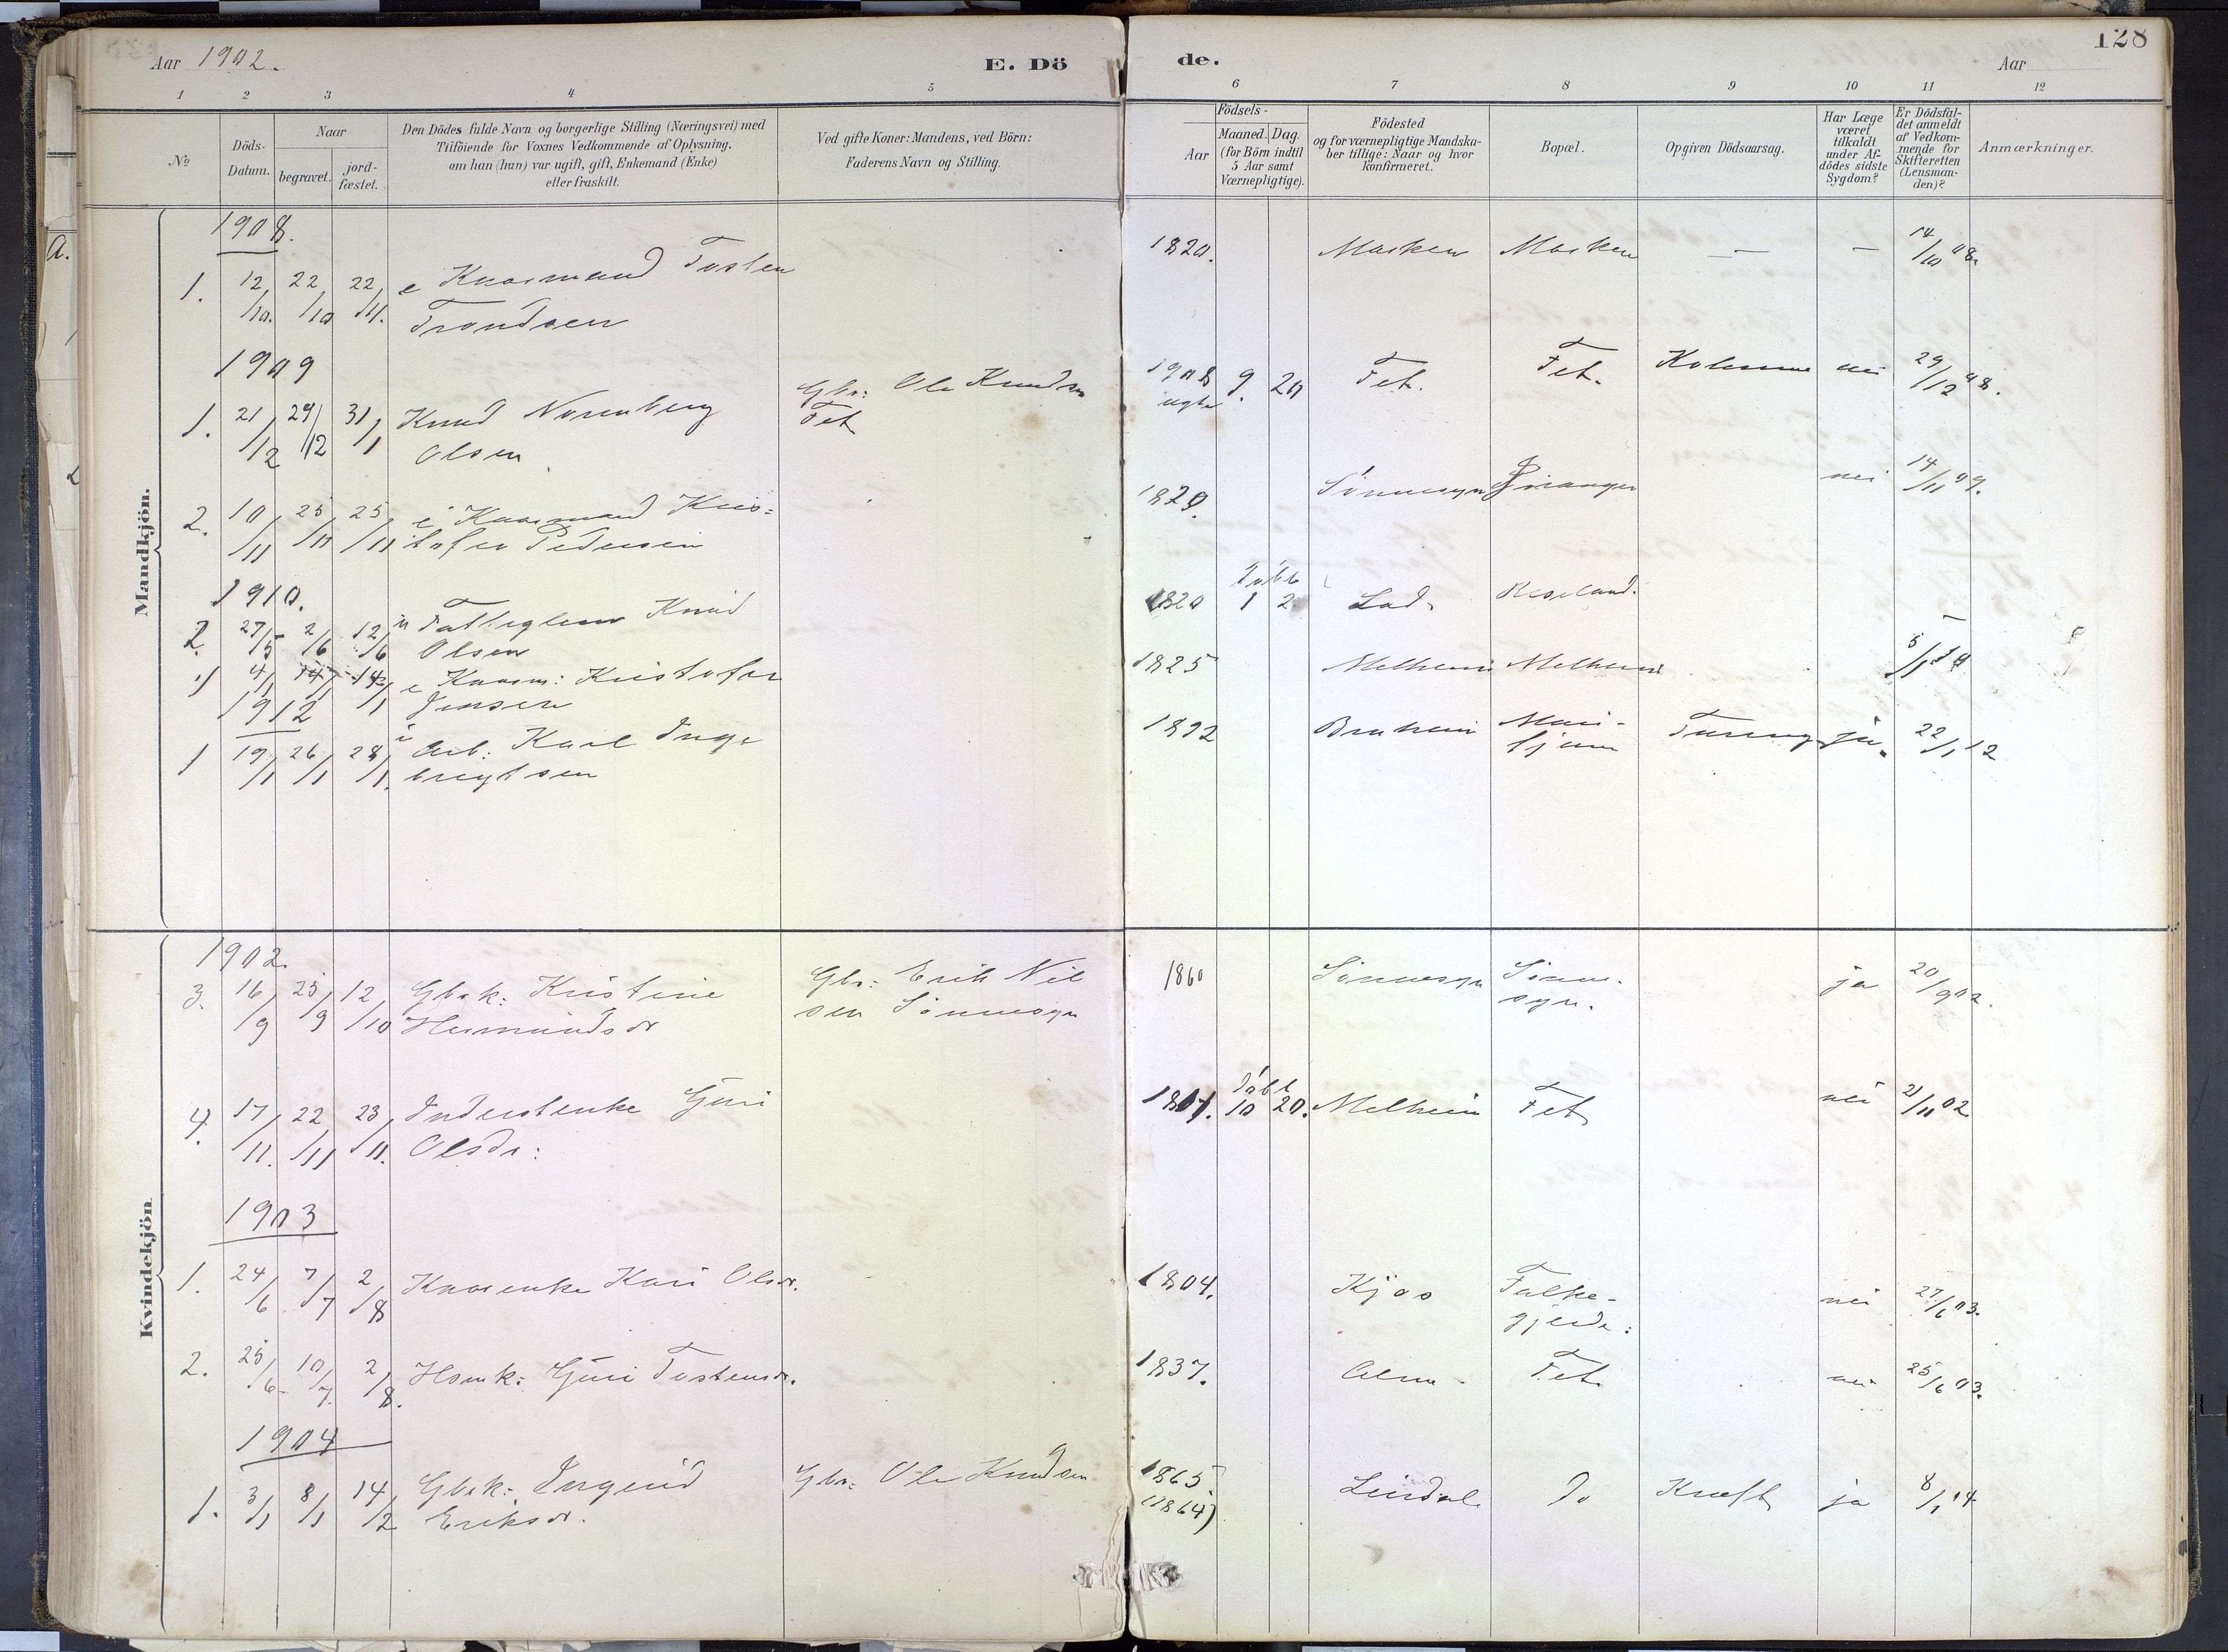 128
Aar 1902.
E. Dö
de.
Aar
1 2 3 4 5 6 7 8 9 10 11 12
No
Döds-
Datum.
Naar
begravet.
jord-
fæstet.
Den Dödes fulde Navn og borgerlige Stilling (Næringsvei) med
Tilföiende for Voxnes Vedkommende af Oplysning,
om han (hun) var ugift, gift, Enkemand (Enke)
eller fraskilt.
Ved gifte Koner: Mandens, ved Börn:
Faderens Navn og Stilling.
Födsels-
Aar
Maaned. Dag.
(for Börn indtil
5 Aar samt
Værnepligtige).
Födested
og for værnepligtige Mandska-
ber tillige: Naar og hvor
konfirmeret.
Bopæl.
Opgiven Dödsaarsag.
Har Læge
været
tilkaldt
under Af-
dödes sidste
Sygdom?
Er Dödsfal-
det anmeldt
af Vedkom-
mende for
Skifteretten
(Lensman-
den)?
Anmærkninger.
Mandkjön.
1908.
1. 12/10. 22/10 22/11. e Kaarmand Tosten 1820. Masken Masken — — 14/10 08.
Trondsen
1909
1. 21/12 29/12 31/1 Knud Norenberg Gbr: Ole Knudsen 1908 9. 20 Fet. Fet. nei 29/12 08.
Olsen Fet
2. 10/11 25/11 25/11 Kaarmand Kris= 1829. Sönnesyn nei 14/11 09.
tofer Pedersen
1910.
2. 27/5 2/6 12/6 Knud 1820 Döbt 1 2 Lad
Olsen
1 4/1 14/1 e Kaarm: Kristofer 1825 Melheim Melheim
Jensen
1912
1 19/1 26/1 28/1. Arb: Karl Inge 1892 Mari- Turing ja. 22/1 12
brigtsen fjæren
Kvindekjön
1902.
3. 16/9 25/9 12/10 Gbrk: Kristine Gbr: Erik Nil 1860 Sönnesyn Sönne- ja 20/9 02.
Hermundsdr sen Sönnesyn syn.
4. 17/11. 22/11 23/11. Inderstenke Guri 1807. Döbt 10 20. Melheim Fet nei 21/11 02
Olsdr:
1903
1. 24/6 7/7 2/8 Kaarenke Kari Olsdr. 1804. Kjos Falke- nei 27/6 03.
gjerde:
2. 25/6 10/7. 2/8. Hsmk: Guri Tostensdr. 1837. Alme Fet nei 25/6 03.
1904
1. 3/1 8/1 14/2 Gbrk: Ingerid Gbr: Ole Knudsen 1865 Lærdal Do Kræft ja 8/1 14
Eriksdr. (1864)